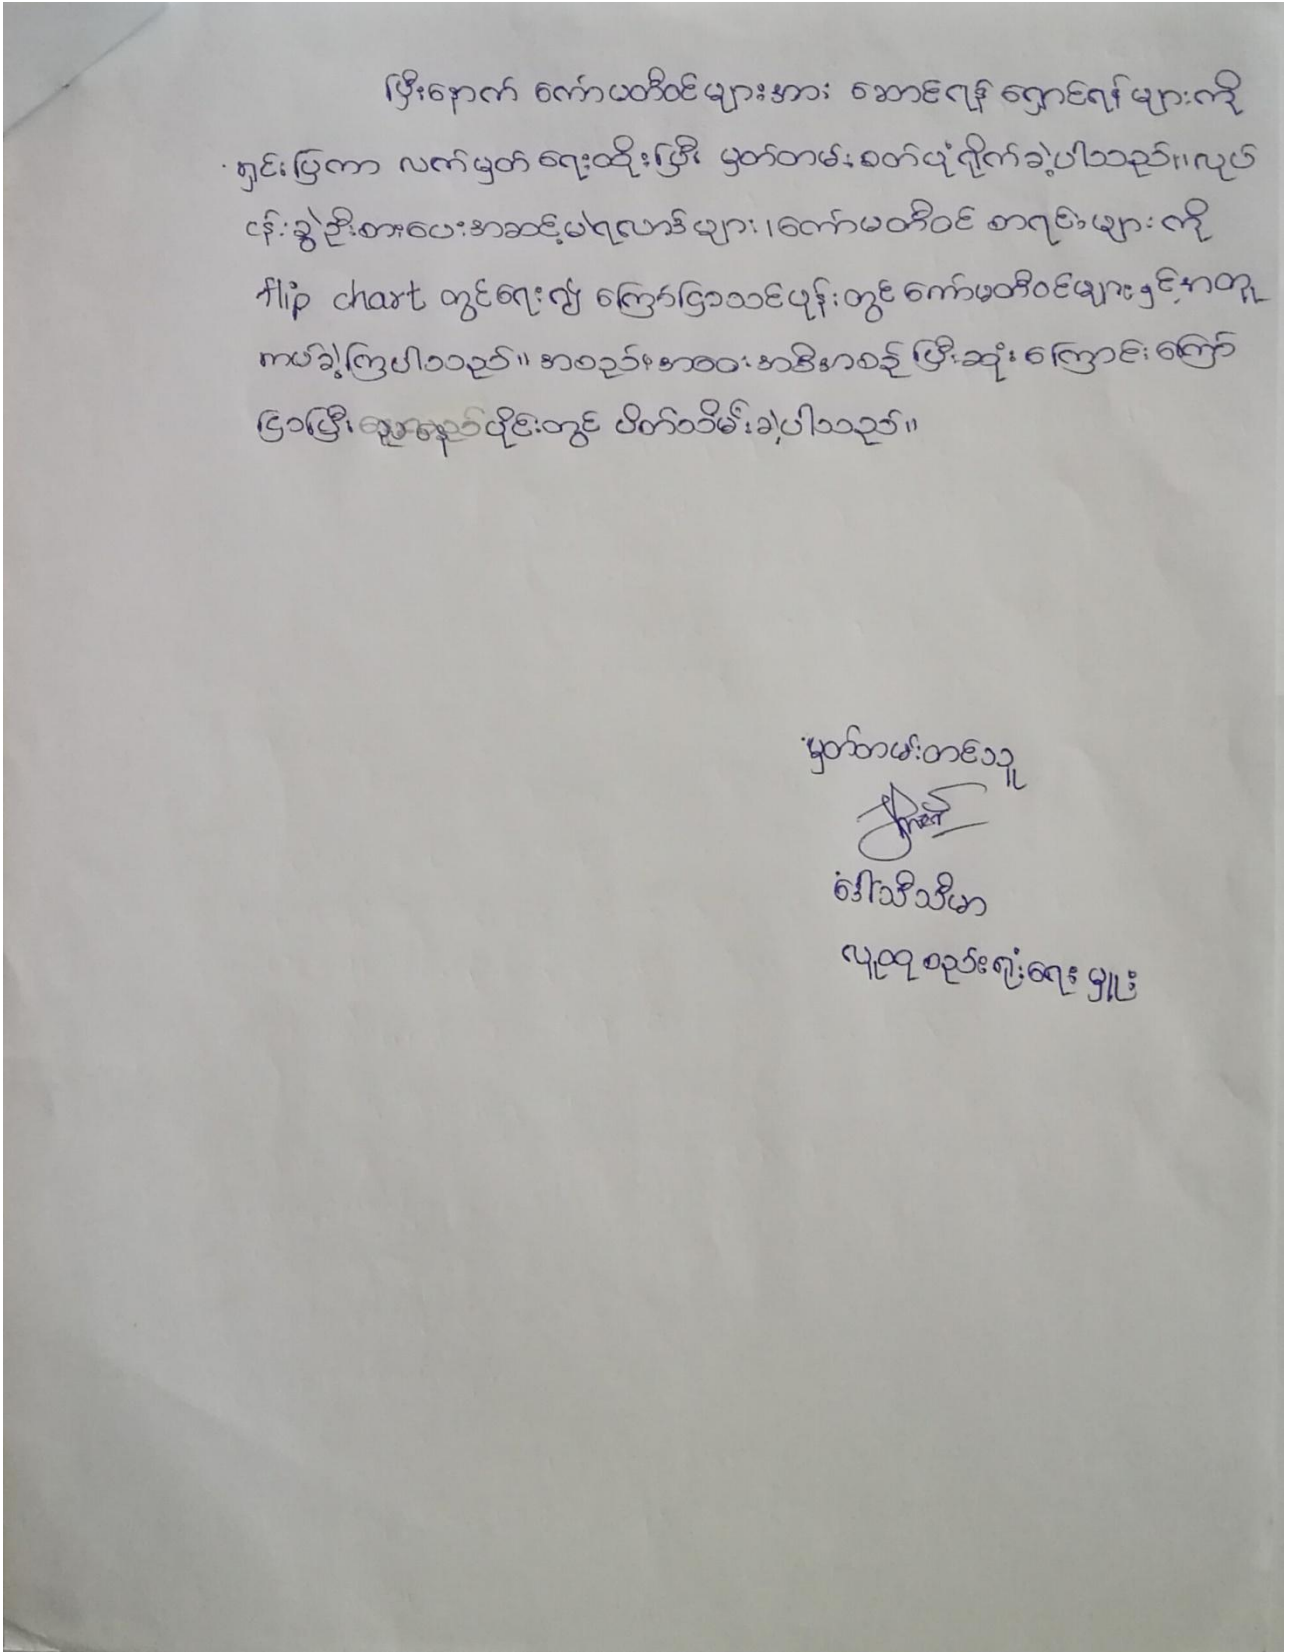 ပြီးနောက် ကော်မတီဝင်များအား ဆောင်ရန် ရှောင်ရန်များကို
ရှင်းပြကာ လက်မှတ်ရေးထိုးပြီး မှတ်တမ်းဓတ်ပုံရိုက်ခဲ့ပါသည်။ လုပ်
ငန်းခွဲဦးစားပေးအဆင့်မဲရလာဒ်များ၊ ကော်မတီဝင် စာရင်းများကို
flip chart တွင်ရေး၍ ကြော်ငြာသင်ပုန်းတွင် ကော်မတီဝင်များနှင့်အတူ
ကပ်ခဲ့ကြပါသည်။ အစည်းအဝေးအစီအစဉ် ပြီးဆုံးကြောင်းကြော်
ငြာပြီး ပိုင်းတွင် ပိတ်သိမ်းခဲ့ပါသည်။
မှတ်တမ်းတင်သူ
ဒေါ်သီသီမာ
လူထုစည်းရုံးရေးမှူး